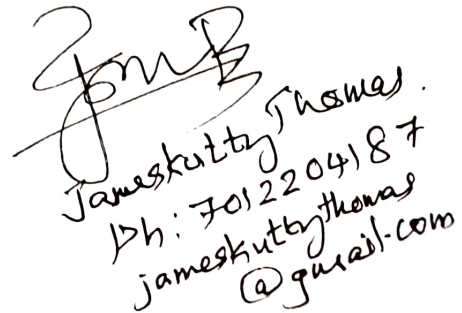 Jameskutty Thomas.
Ph: 7012204187
jameskuttythomas
@gmail.com